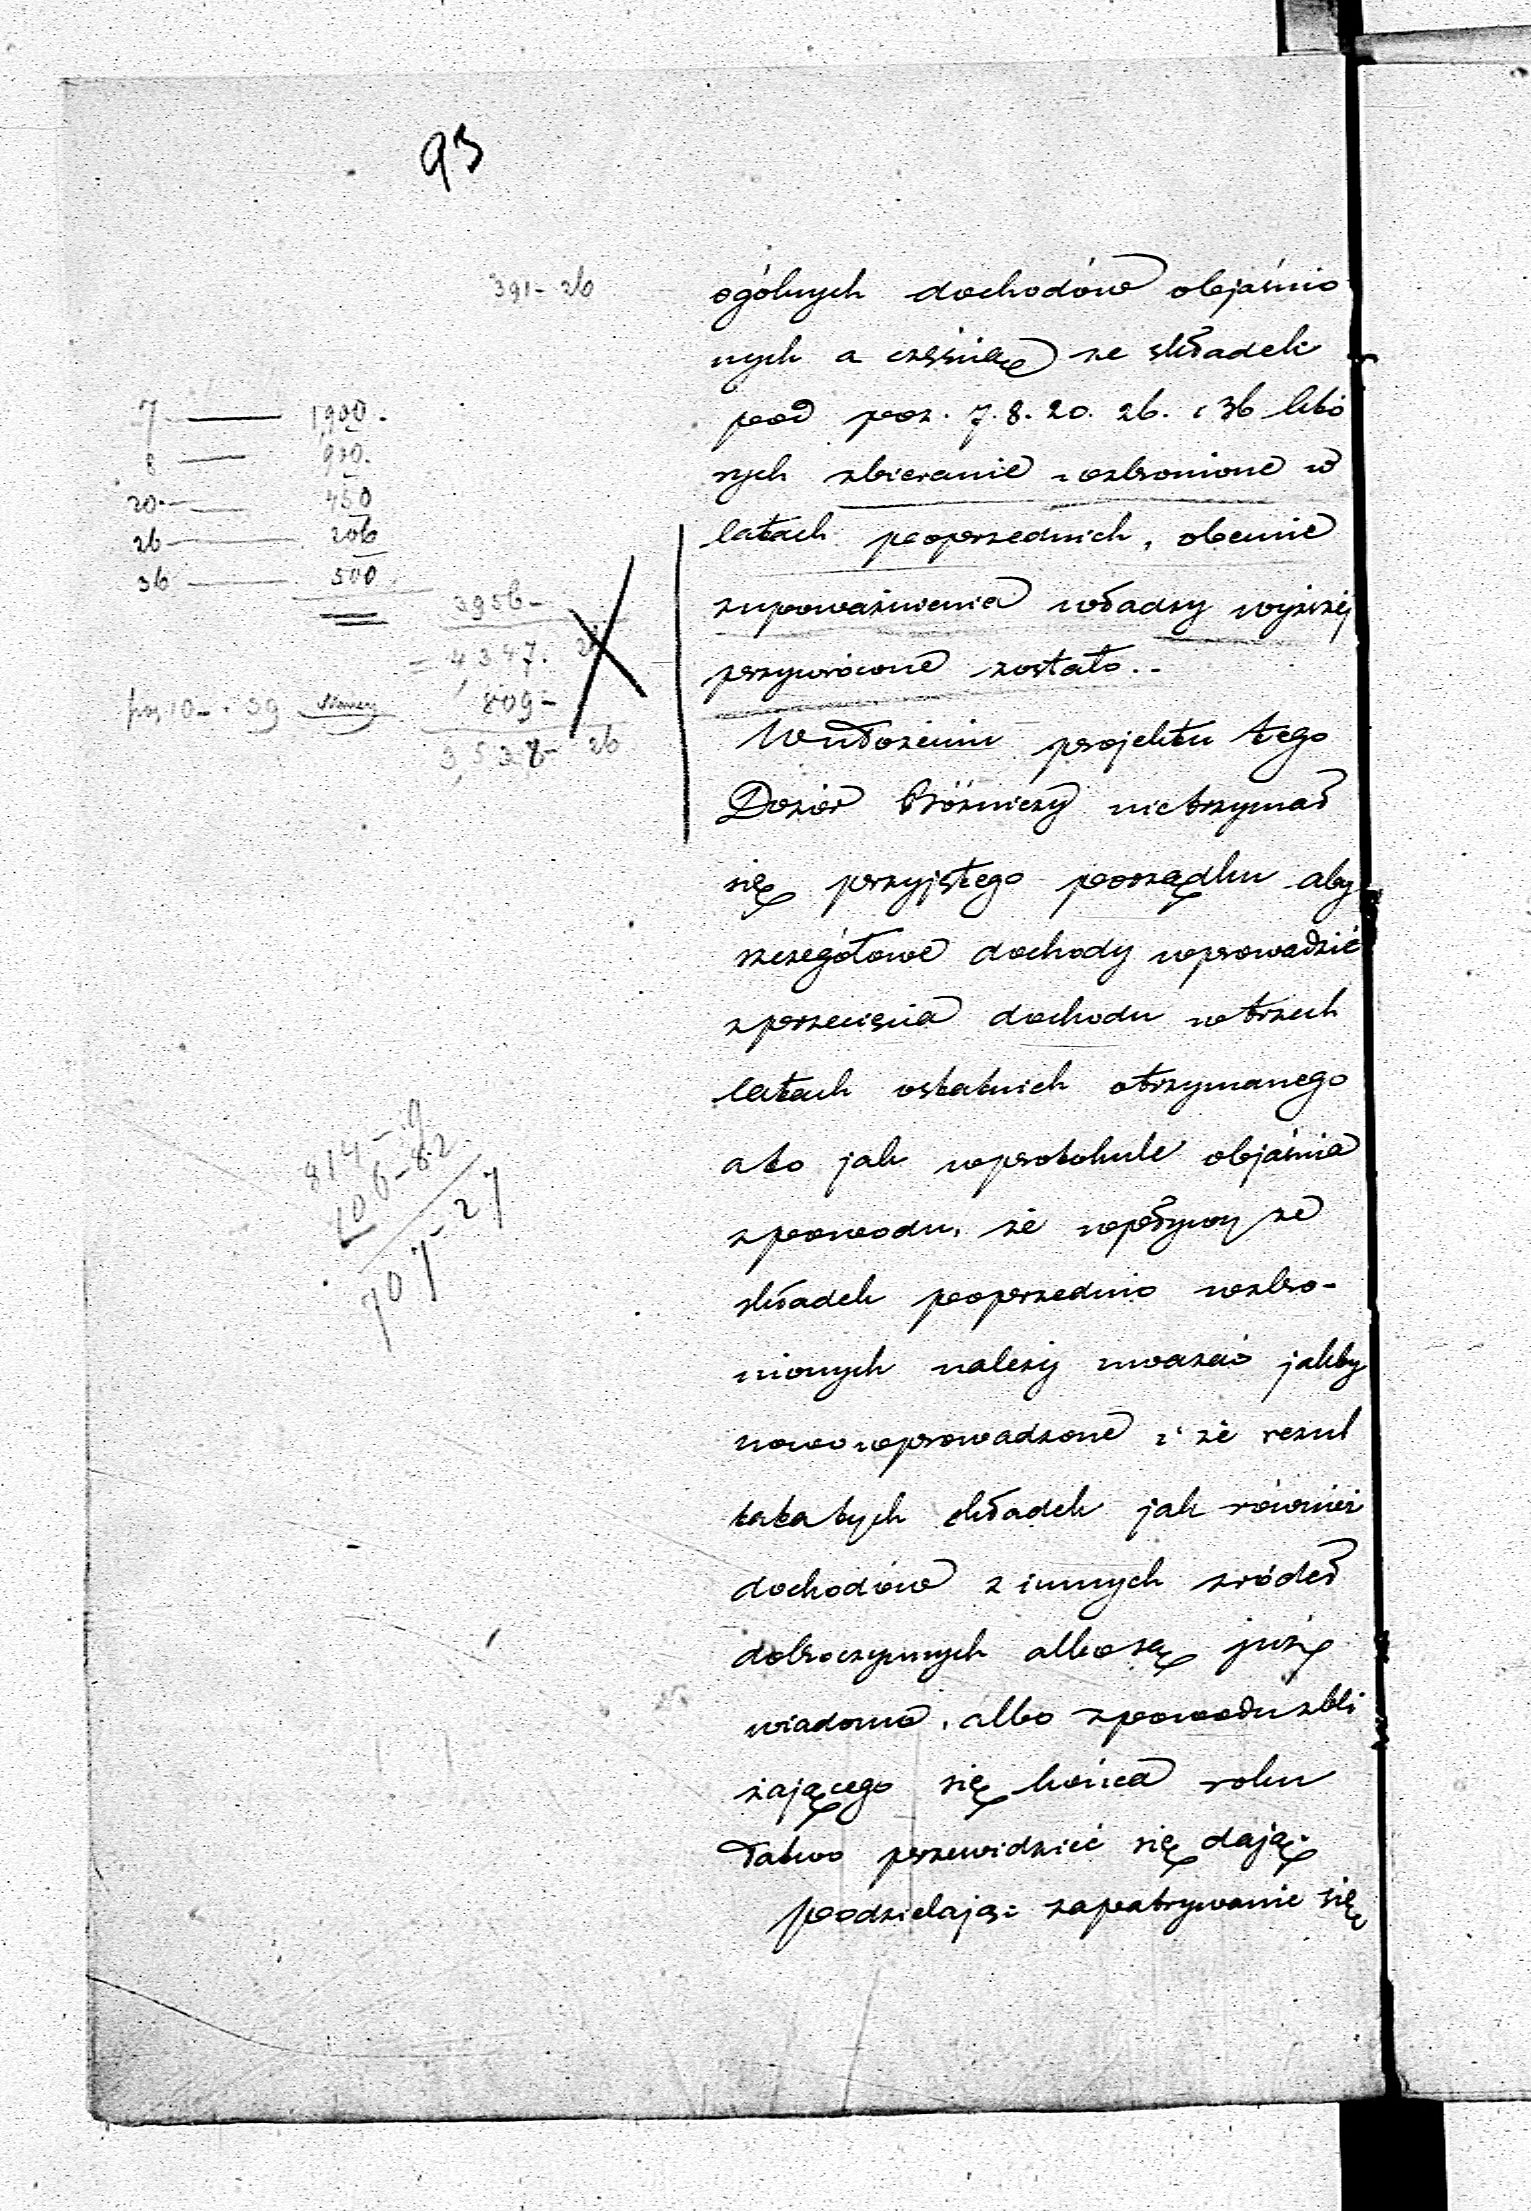 93
391-26
7 — 1,900.
8 — 900.
20 — 450
26 — 206
36 — 500
3956-
= 4,347. 26
poz 10- i 39 809-
3,538- 26
814-9
106-82
707-27
ogólnych dochodów objaśnio
nych a cześnią ze składek
pod poz. 7. 8. 20. 26. i 36 któ
rych zbieranie wzbronione w
latach poprzednich, obecnie
zupoważnienia władzy wyższej
przywrócone zostało..
Wułożeniu projektu tego
Dozór Bóżniczy nietrzymał
się przyjętego porządku aby
szczegółowe dochody wprowadzić
zprzecięcia dochodu wtrzech
latach ostatnich otrzymanego
ato jak wprotokule objaśnia
zpowodu, że wpływy ze
składek poprzednio wzbro-
nionych należy uważać jakby
nowowprowadzone i że rezul
tata tych składek jak również
dochodów z innych źródeł
dobroczynnych albo są już
wiadome, albo zpowodu zbli
żającego się końca roku
łatwo przewidzieć się dają.
Podzielając zapatrywanie się